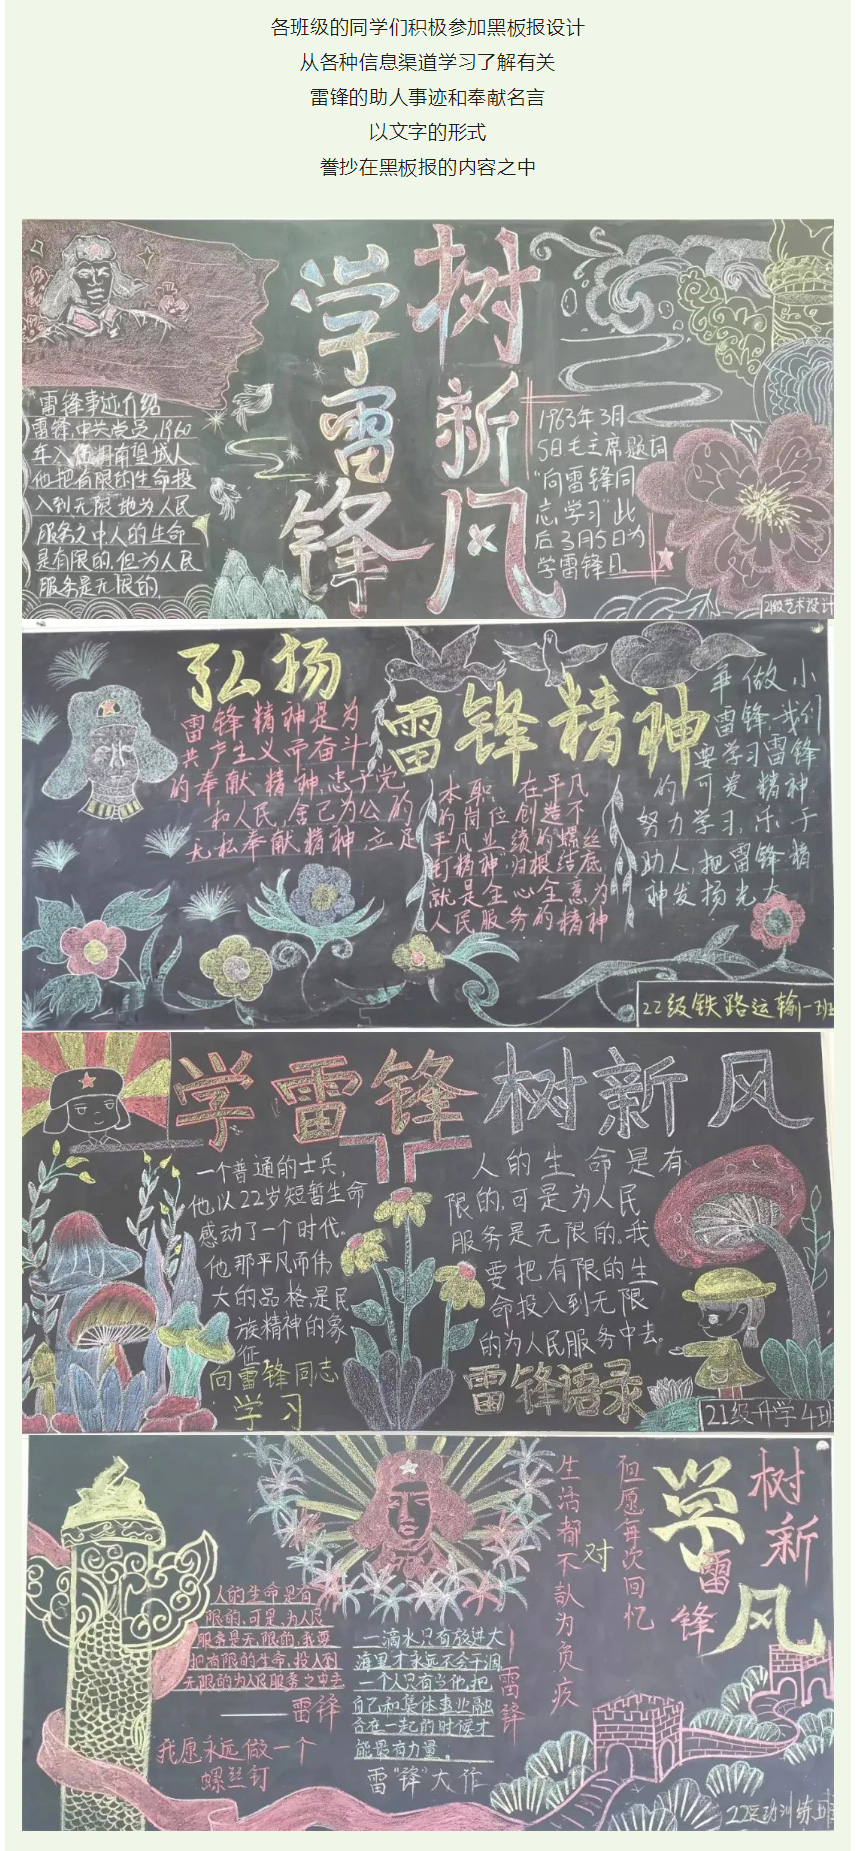 各班级的同学们积极参加黑板报设计
从各种信息渠道学习了解有关
雷锋的助人事迹和奉献名言
以文字的形式
誊抄在黑板报的内容之中
学雷锋
树新风
雷锋事迹介绍
雷锋,中共党员,1960
年入伍湖南望城人
他把有限的生命投
入到无限地为人民
服务之中人的生命
是有限的,但为人民
服务是无限的.
1963年3月
5日毛主席题词
“向雷锋同
志学习”此
后3月5日为
学雷锋日.
21级艺术设计
弘扬
雷锋精神
雷锋精神是为
共产主义而奋斗
的奉献精神,忠于党
和人民,舍己为公的
无私奉献精神,立足
本职 在平凡
的岗位创造不
平凡业绩的螺丝
钉精神,归根结底
就是全心全意为
人民服务的精神
争做小
雷锋,我们
要学习雷锋
的可贵精神
努力学习,乐于
助人,把雷锋精
神发扬光大
22级铁路运输一班
学雷锋树新风
一个普通的士兵,
他,以22岁短暂生命
感动了一个时代。
他那平凡而伟
大的品格,是民
族精神的象
征
向雷锋同志
学习
人的生命是有
限的,可是为人民
服务是无限的。我
要把有限的生
命投入到无限
的为人民服务中去。
雷锋语录
21级升学4班
人的生命是有
限的,可是,为人民
服务是无限的,我要
把有限的生命,投入到
无限的为人民服务之中去
——雷锋
我愿永远做一个
螺丝钉
一滴水只有放进大
海里才永远不会干涸
一个人只有当他把
自己和集体事业融
合在一起的时候才
能最有力量。
雷锋
雷“锋”大作
但愿每次回忆
对
生活都不感为负疚
学雷锋
树新风
22运动训练班